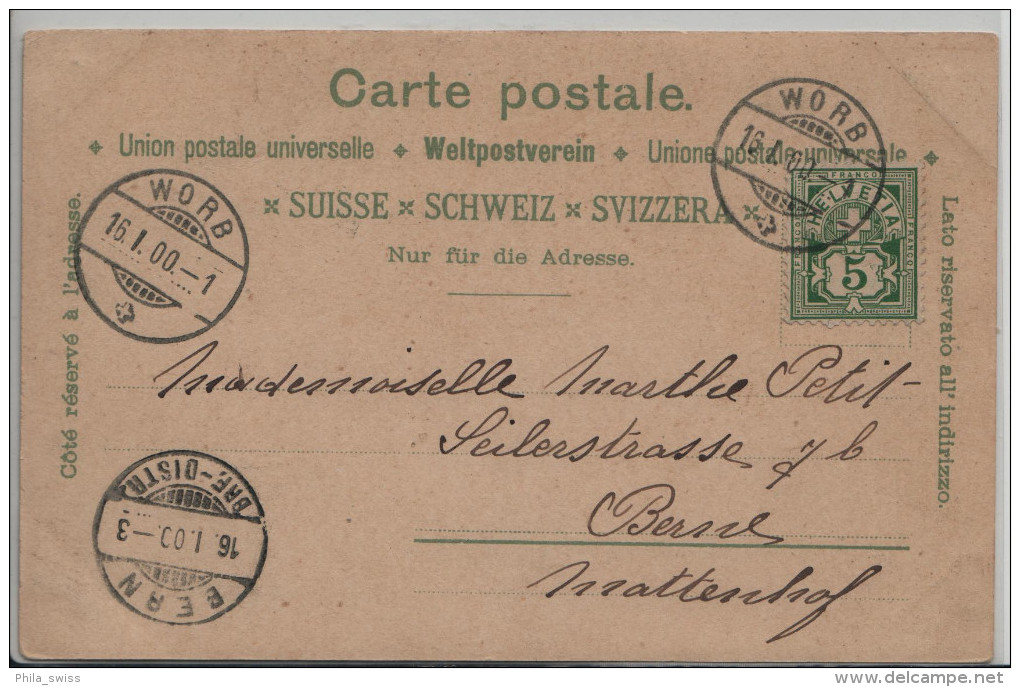 Carte postale.
Union postale universelle Weltpostverein Unione postale universale
SUISSE SCHWEIZ SVIZZERA
Nur für die Adresse.
Côté réservé à l'adresse.
Lato riservato all' indirizzo.
WORB
16.I.00.-1
WORB
16.I.00.-1
FRANCO
FRANCO
FRANCO
HELVETIA
5
Mademoiselle Marthe Petit-
Seilerstrasse 7b
Berne
Mattenhof
BRF.-DISTR.
16.I.00-3
BERN
Phila_swiss
delcampe.net